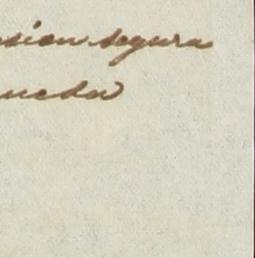 sion segura
ueda